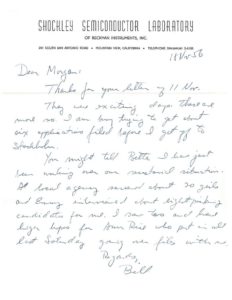 SHOCKLEY SEMICONDUCTOR LABORATORY
OF BECKMAN INSTRUMENTS, INC.
391 SOUTH SAN ANTONIO ROAD • MOUNTAIN VIEW, CALIFORNIA • TELEPHONE
18 Nov 56
Dear Morgan:
Thanks for your letter of 11 Nov.
They are exciting days these are
more so I am busy trying to get about
six applications filed before I get off to
Stockholm.
You might tell Bette I have just
been working over our secretarial situation.
A local agency screened about 30 girls
and Emmy interviewed about eight promising
candidates for me. I saw two and have
high hopes for Ann Rose who put in all
last Saturday going over files with me.
Regards,
Bill